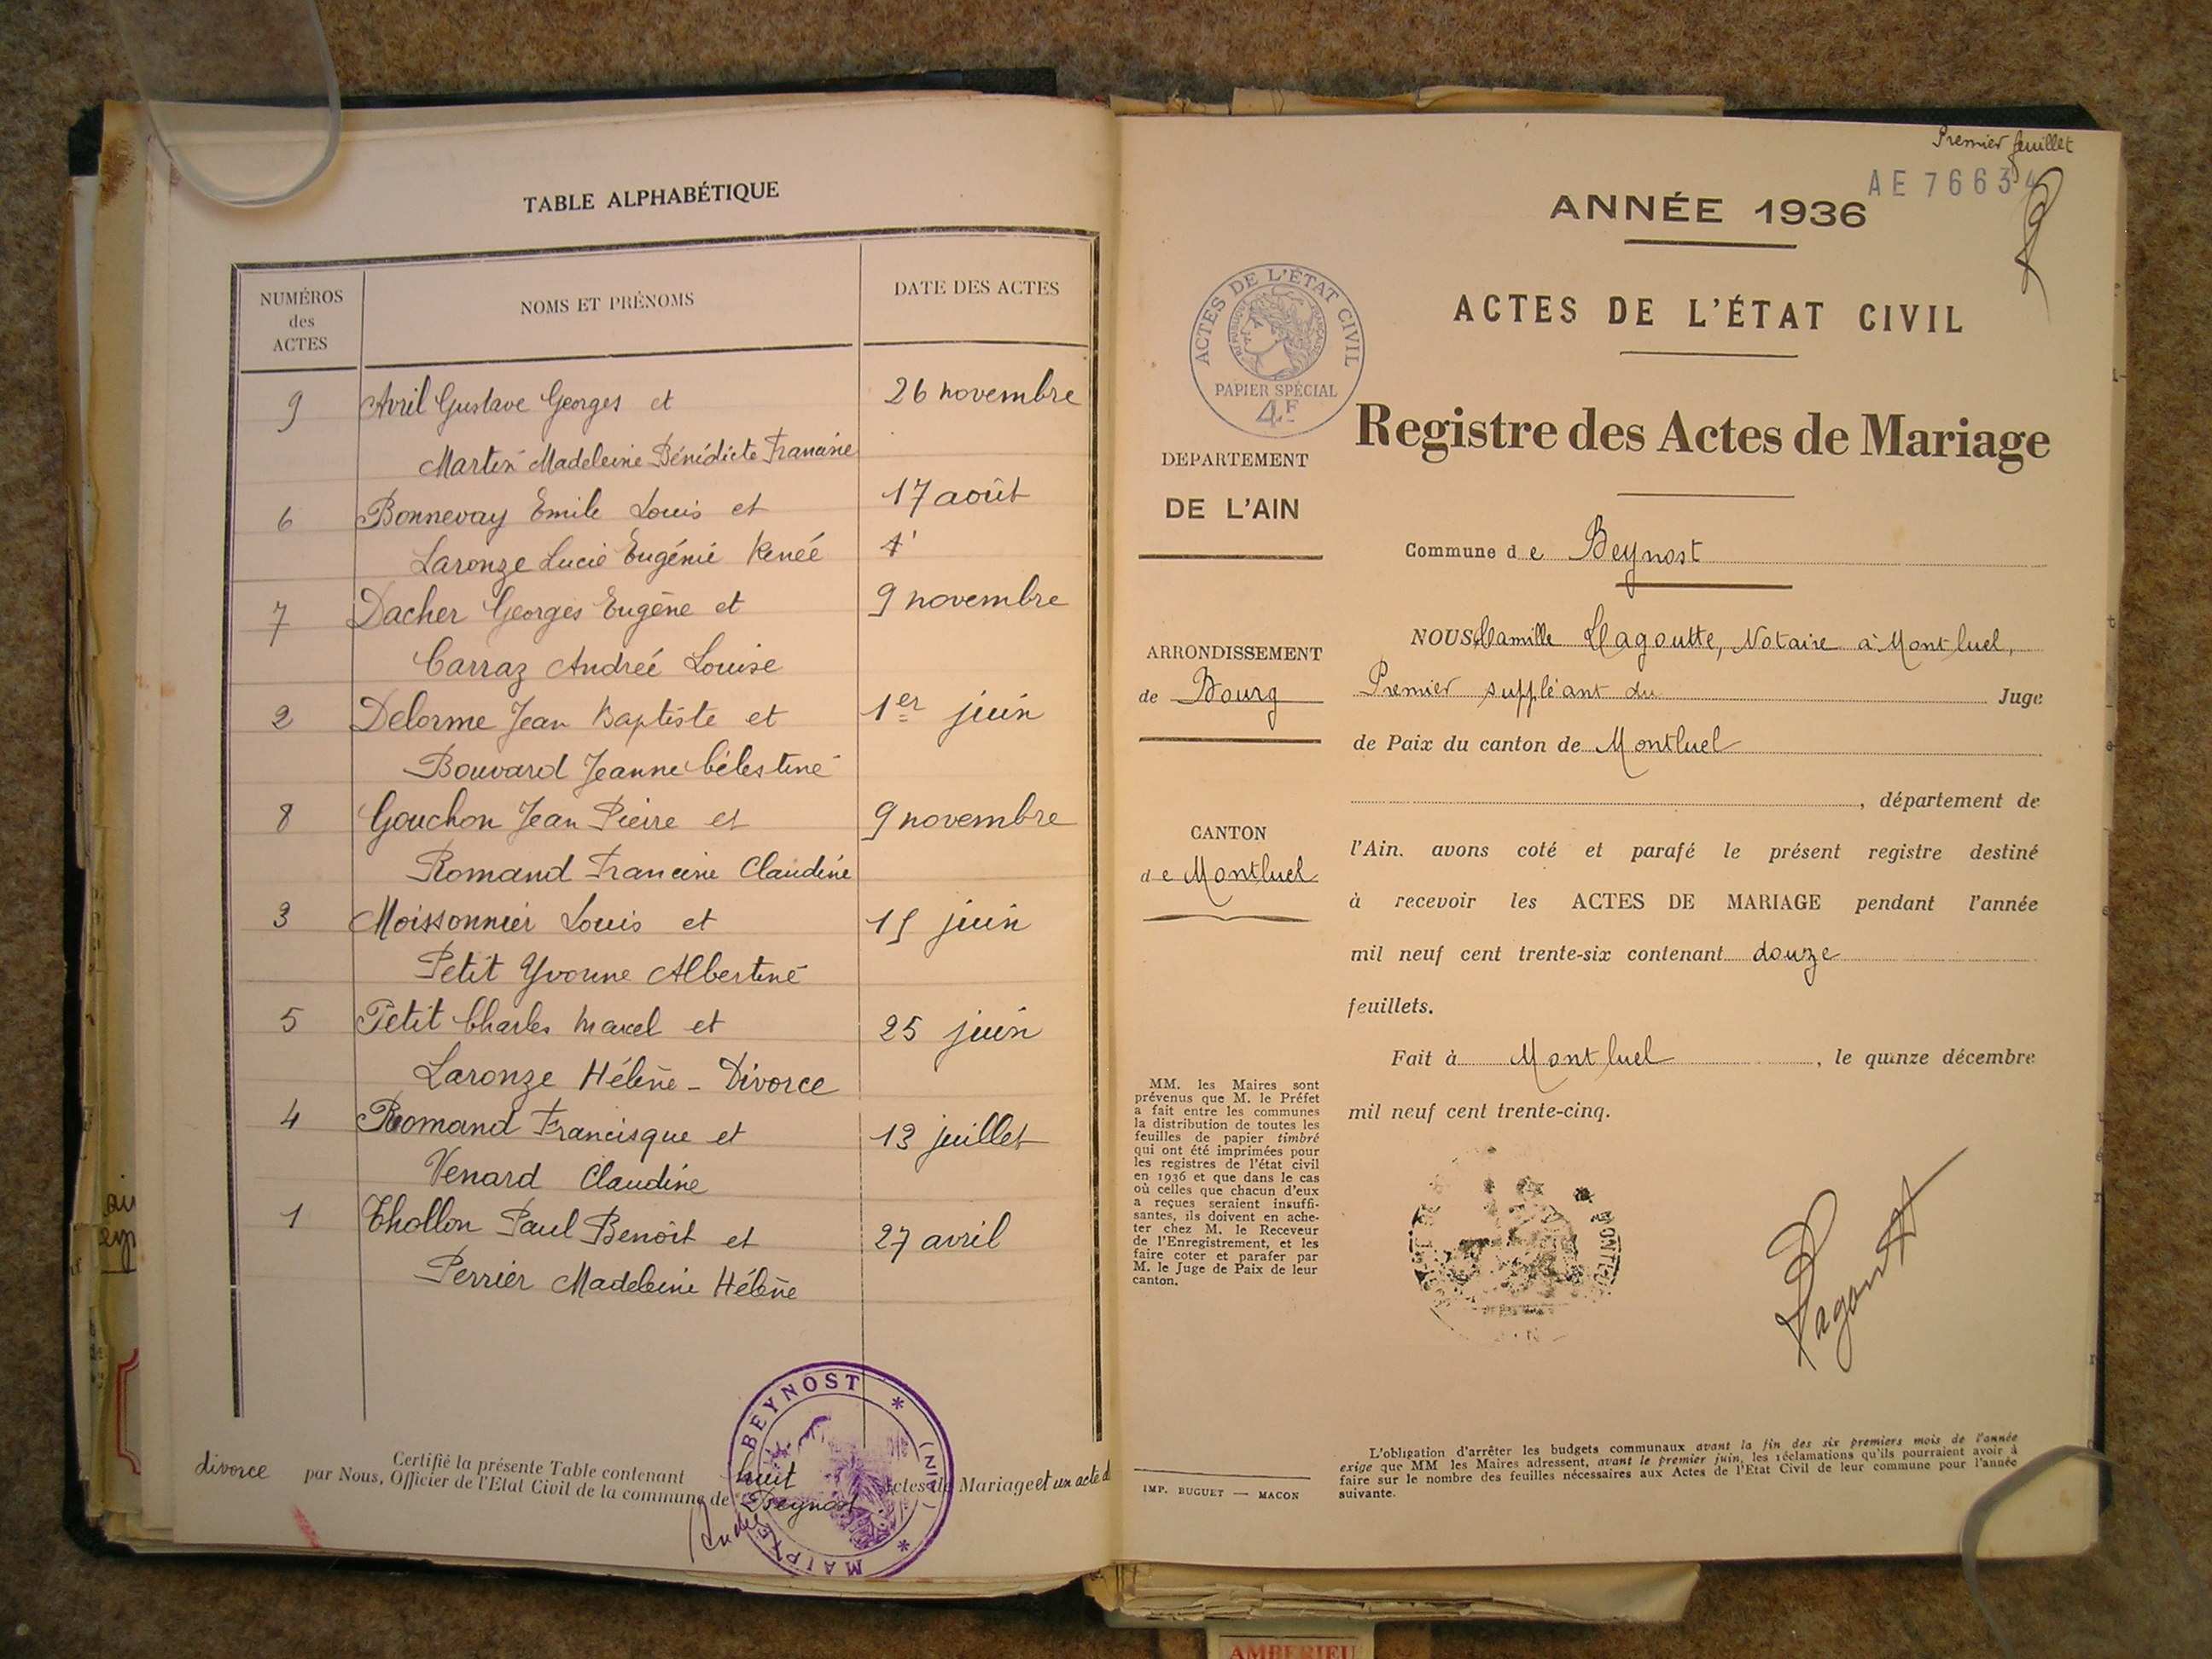 TABLE ALPHABÉTIQUE
NUMÉROS
des
ACTES
NOMS ET PRÉNOMS
DATE DES ACTES
9 Avril Gustave Georges et 26 novembre
Martin Madeleine Bénédicte Francine
6 Bonnevay Emile Louis et 17 août
Laronze Lucie Eugénie Renée
7 Dacher Georges Eugène et 9 novembre
Carraz Andreé Louise
2 Delorme Jean Baptiste et 1er juin
Bouvard Jeanne Célestine
8 Gouchon Jean Pierre et 9 novembre
Romand Francine Claudine
3 Moissonnier Louis et 15 juin
Petit Yvonne Albertine
5 Petit Charles Marcel et 25 juin
Laronze Hélène - Divorce
4 Romand Francisque et 13 juillet
Venard Claudine
1 Thollon Paul Benoît et 27 avril
Perrier Madeleine Hélène
Certifié la présente Table contenant huit actes de Mariage et un acte d
divorce par Nous, Officier de l'Etat Civil de la commune de Beynost
BEYNOST * (AIN) * MAIRIE
Premier feuillet
AE 76634
ANNÉE 1936
ACTES DE L'ÉTAT CIVIL
ACTES DE L'ÉTAT CIVIL
RÉPUBLIQUE FRANÇAISE
PAPIER SPÉCIAL
4F
Registre des Actes de Mariage
DEPARTEMENT
DE L'AIN
Commune de Beynost
ARRONDISSEMENT
de Bourg
CANTON
de Montluel
NOUS, Camille Lagoutte, Notaire à Montluel,
Premier suppléant du Juge
de Paix du canton de Montluel
, département de
l'Ain. avons coté et parafé le présent registre destiné
à recevoir les ACTES DE MARIAGE pendant l'année
mil neuf cent trente-six contenant douze
feuillets.
Fait à Montluel, le quinze décembre
mil neuf cent trente-cinq.
MM. les Maires sont
prévenus que M. le Préfet
a fait entre les communes
la distribution de toutes les
feuilles de papier timbré
qui ont été imprimées pour
les registres de l'état civil
en 1936 et que dans le cas
où celles que chacun d'eux
a reçues seraient insuffi-
santes, ils doivent en ache-
ter chez M. le Receveur
de l'Enregistrement, et les
faire coter et parafer par
M. le Juge de Paix de leur
canton.
Lagoutte
L'obligation d'arrêter les budgets communaux avant la fin des six premiers mois de l'année
exige que MM les Maires adressent, avant le premier juin, les réclamations qu'ils pourraient avoir à
faire sur le nombre des feuilles nécessaires aux Actes de l'Etat Civil de leur commune pour l'année
suivante.
IMP. BUGUET — MACON
AMBERIEU